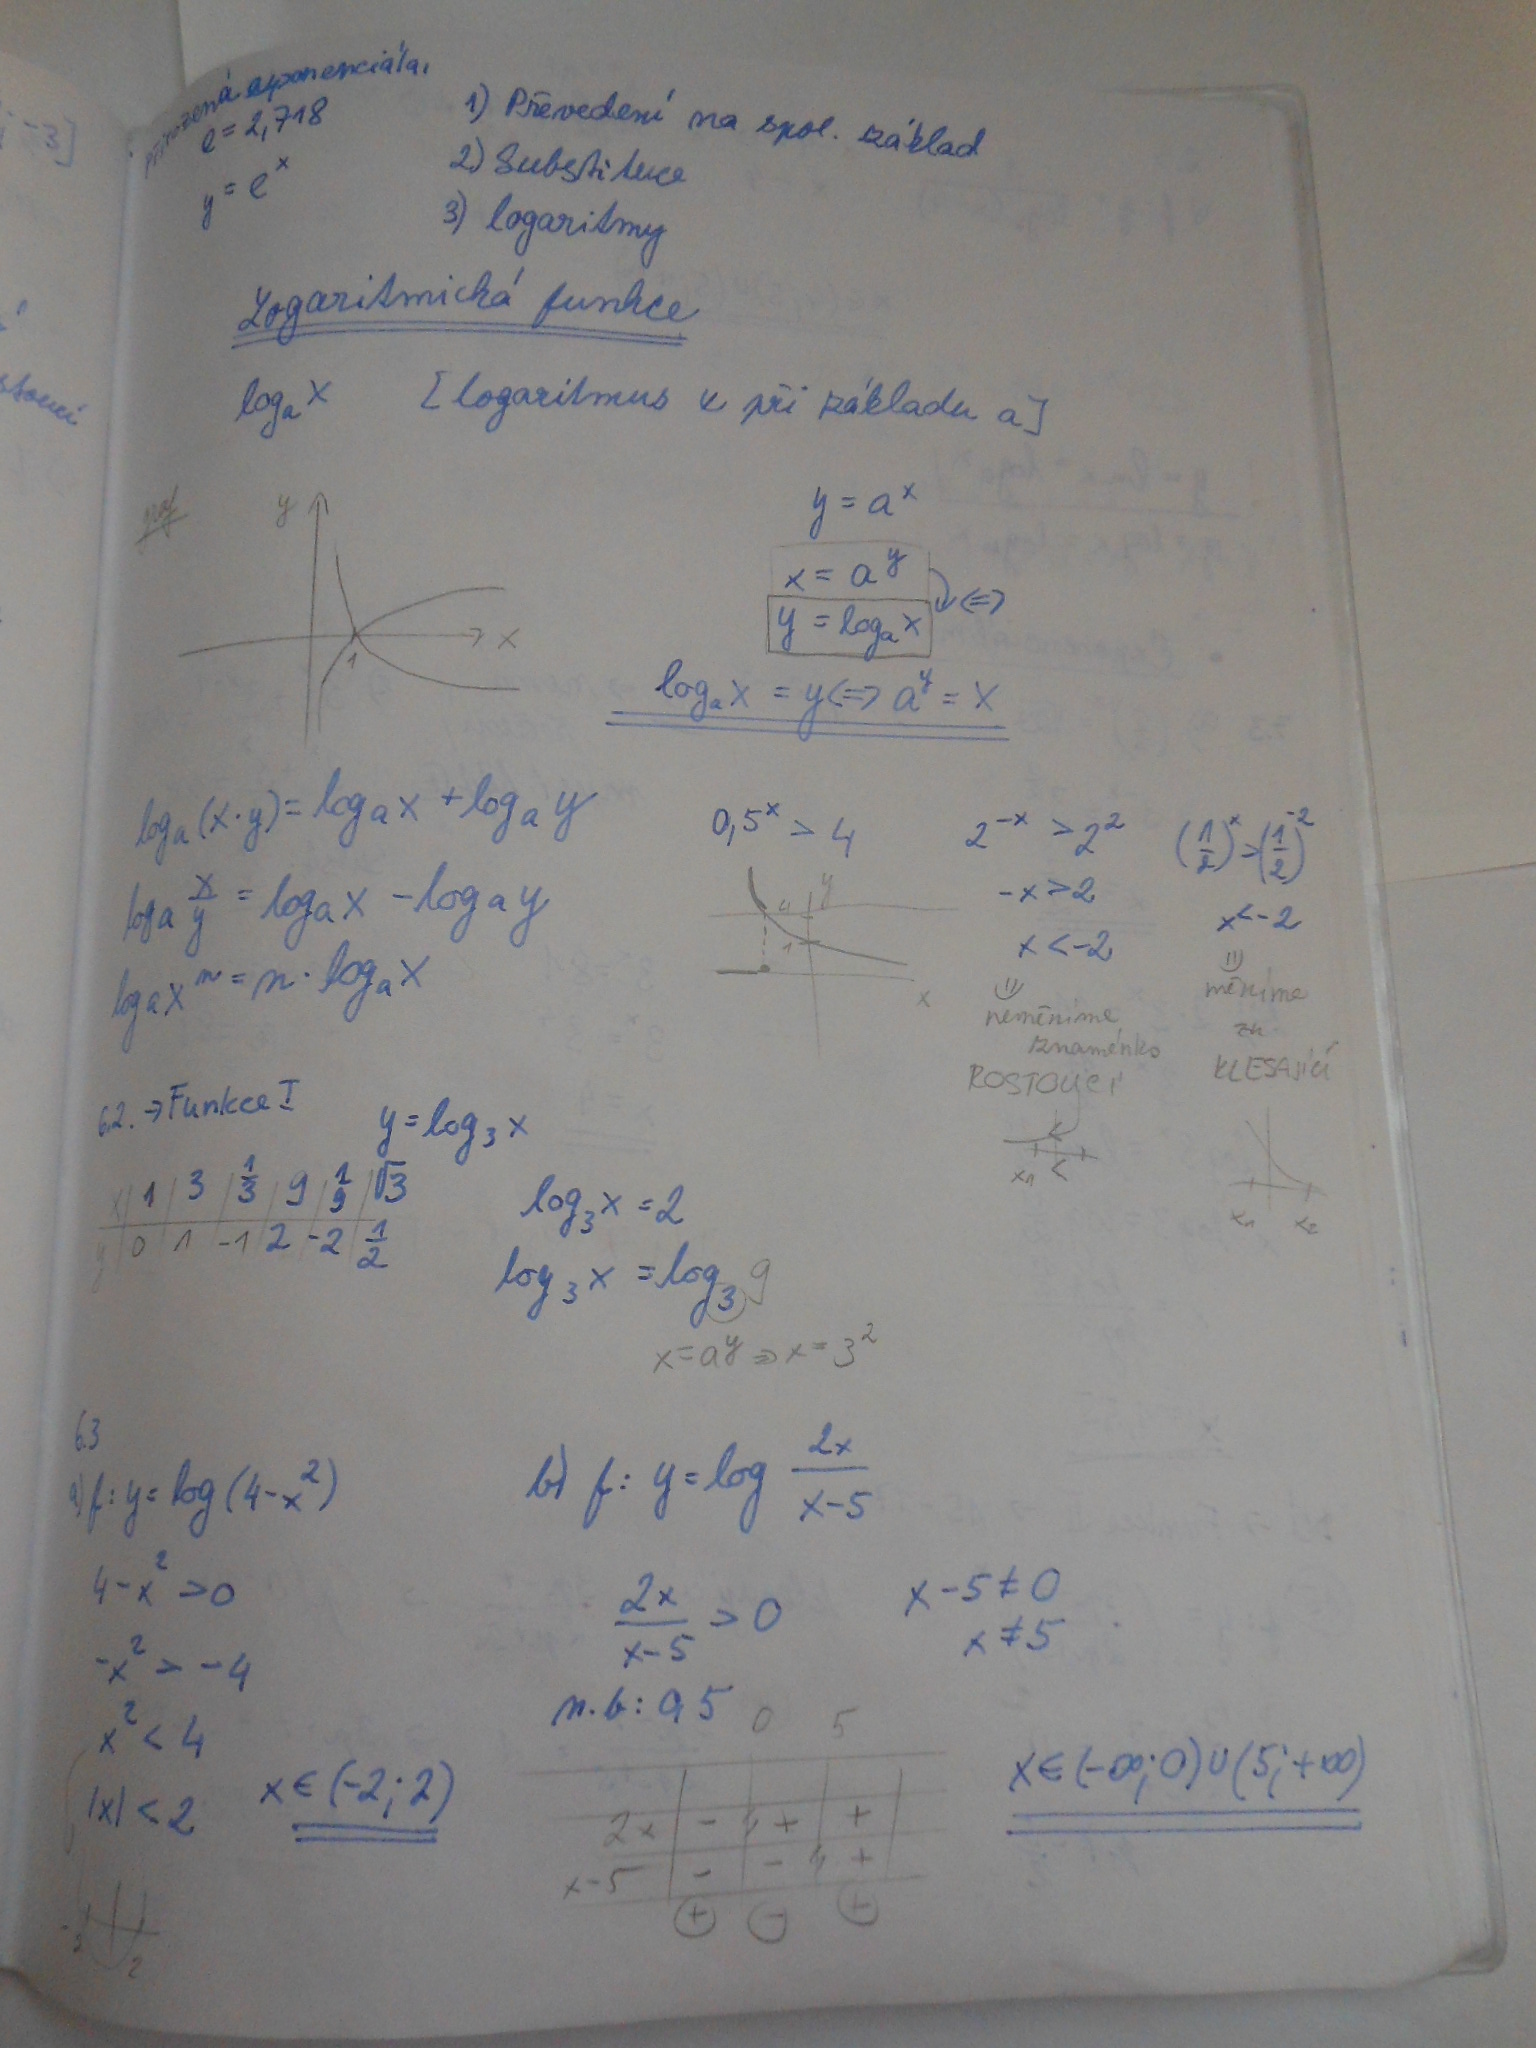 přirozená exponenciála,
e = 2,718
y = e^x
1) Převedení na spol. základ
2) Substituce
3) logaritmy
Logaritmická funkce
log_a x [logaritmus x při základu a]
graf
y
x
1
y = a^x
x = a^y
<=>
y = log_a x
log_a x = y <=> a^y = x
log_a (x·y) = log_a x + log_a y
log_a x/y = log_a x - log_a y
log_a x^n = n · log_a x
0,5^x > 4
4
y
1
x
2^-x > 2^2
-x > 2
x < -2
neměníme
znaménko
ROSTOUCÍ
x1 <
(1/2)^x > (1/2)^-2
x < -2
měníme
zn
KLESAJÍCÍ
x1 x2
6.2. → Funkce I
y = log_3 x
x | 1 | 3 | 1/3 | 9 | 1/9 | √3
y | 0 | 1 | -1 | 2 | -2 | 1/2
log_3 x = 2
log_3 x = log_3 9
x = a^y => x = 3^2
6.3
a) f: y = log (4-x^2)
4 - x^2 > 0
-x^2 > -4
x^2 < 4
|x| < 2
x ∈ (-2; 2)
-2 2
b) f: y = log 2x/(x-5)
2x/(x-5) > 0
x - 5 ≠ 0
x ≠ 5
n.b: 0, 5
0 5
2x - + +
x-5 - - +
+ - +
x ∈ (-∞; 0) ∪ (5; +∞)